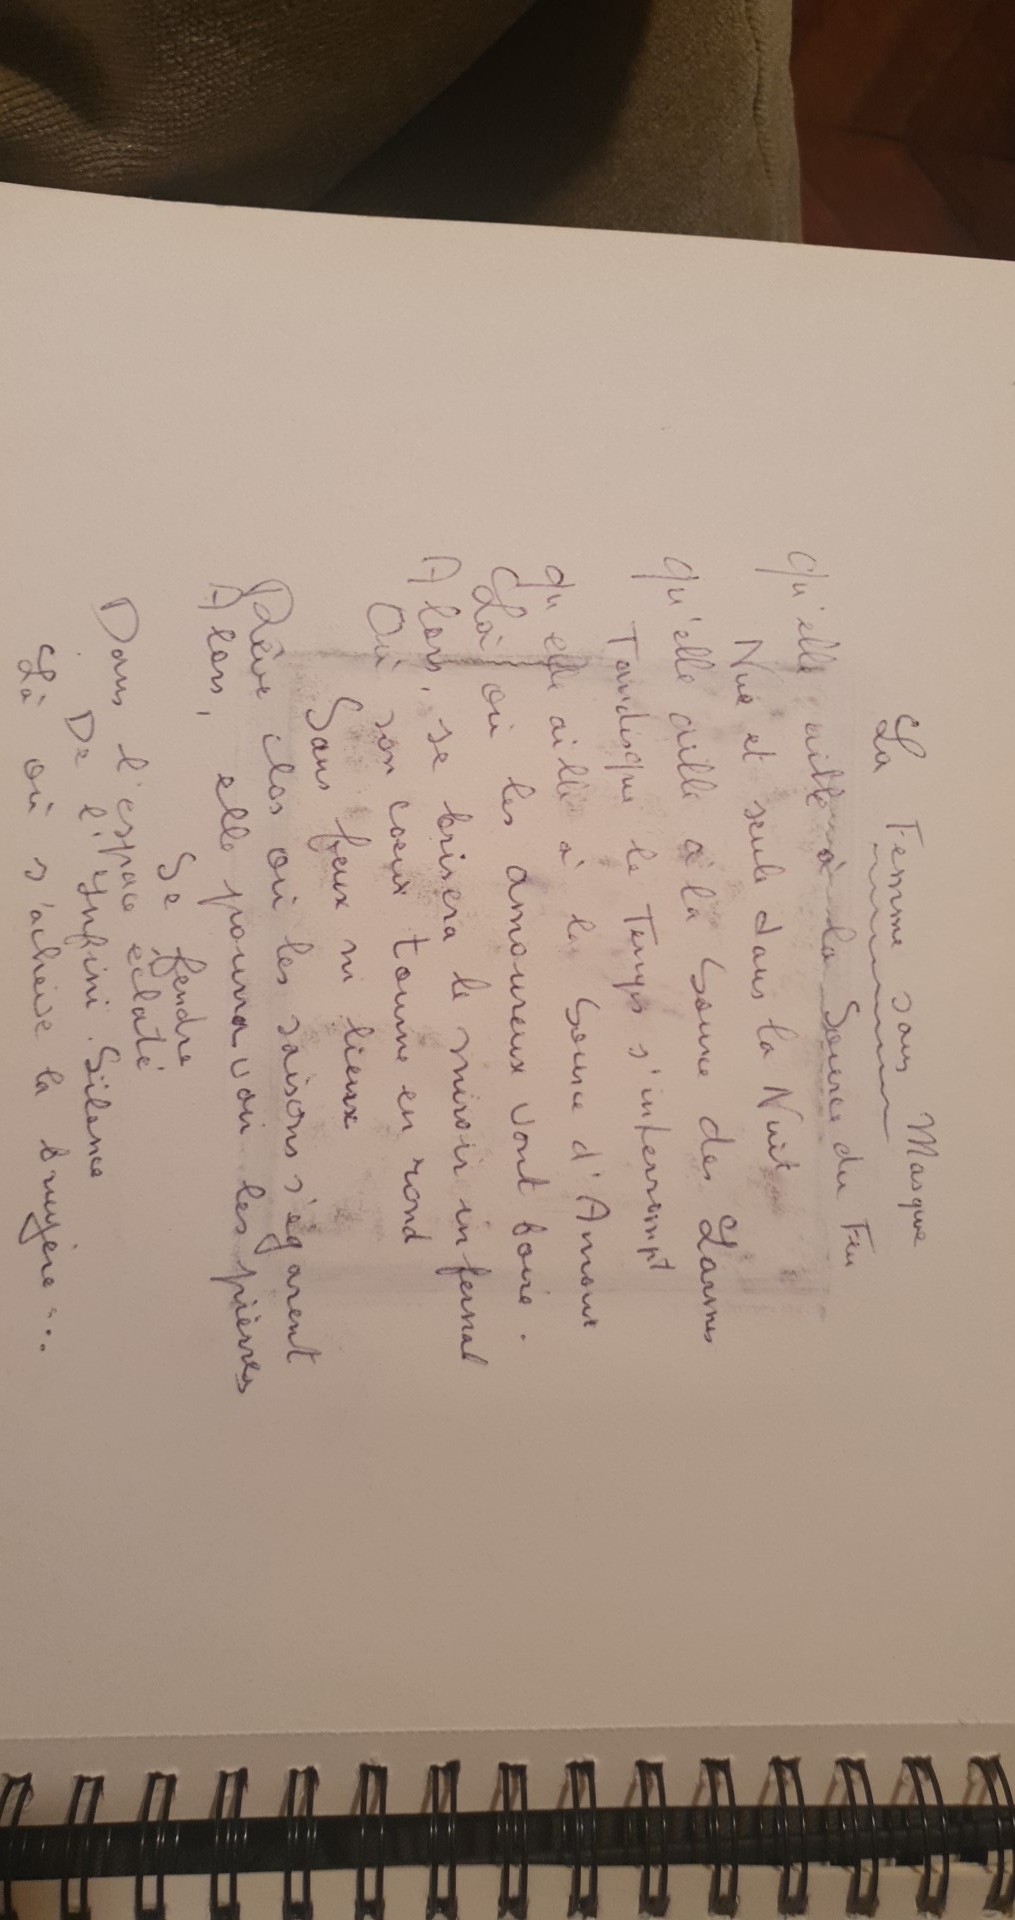 La Femme sans Masque
Qu'elle aille à la Source du Feu
Nue et seule dans la Nuit
Qu'elle aille à la Source des Larmes
Tandisque le Temps s'interrompt
Qu'elle aille à la Source d'Amour
Là où les amoureux vont boire.
Alors, se brisera le miroir infernal
Où son coeur tourne en rond
Sans feux ni lieux
Rêve clos où les saisons s'égarent
Alors, elle pourra voir les pierres
Se fendre
Dans l'espace éclaté
De l'Infini. Silence
Là où s'achève la bruyère...